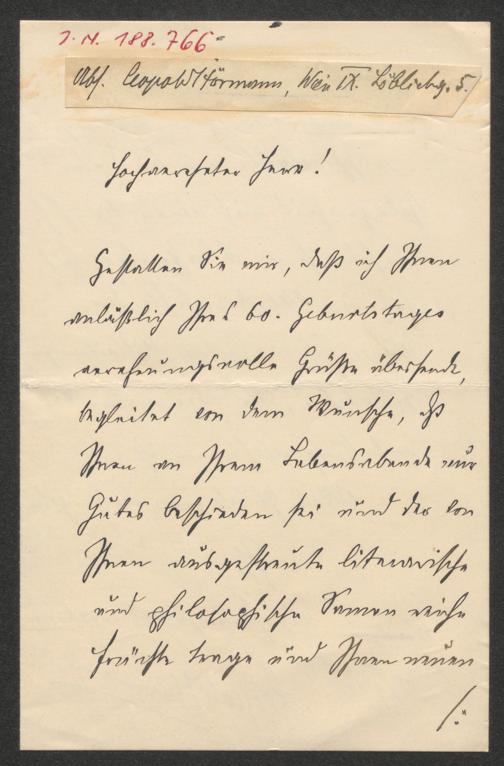 J.N. 188.766
Abs. Leopold Hörmann, Wien IX. Löblichg. 5.
Hochverehrter Herr!
Gestatten Sie mir, daß ich Ihnen
anläßlich Ihres 60. Geburtstages
verehrungsvolle Grüße übersende,
begleitet von dem Wunsche, daß
Ihnen an Ihrem Lebensabende nur
Gutes beschieden sei und der von
Ihnen ausgestreute literarische
und philosophische Samen reiche
Früchte trage und Ihnen neuen
/: